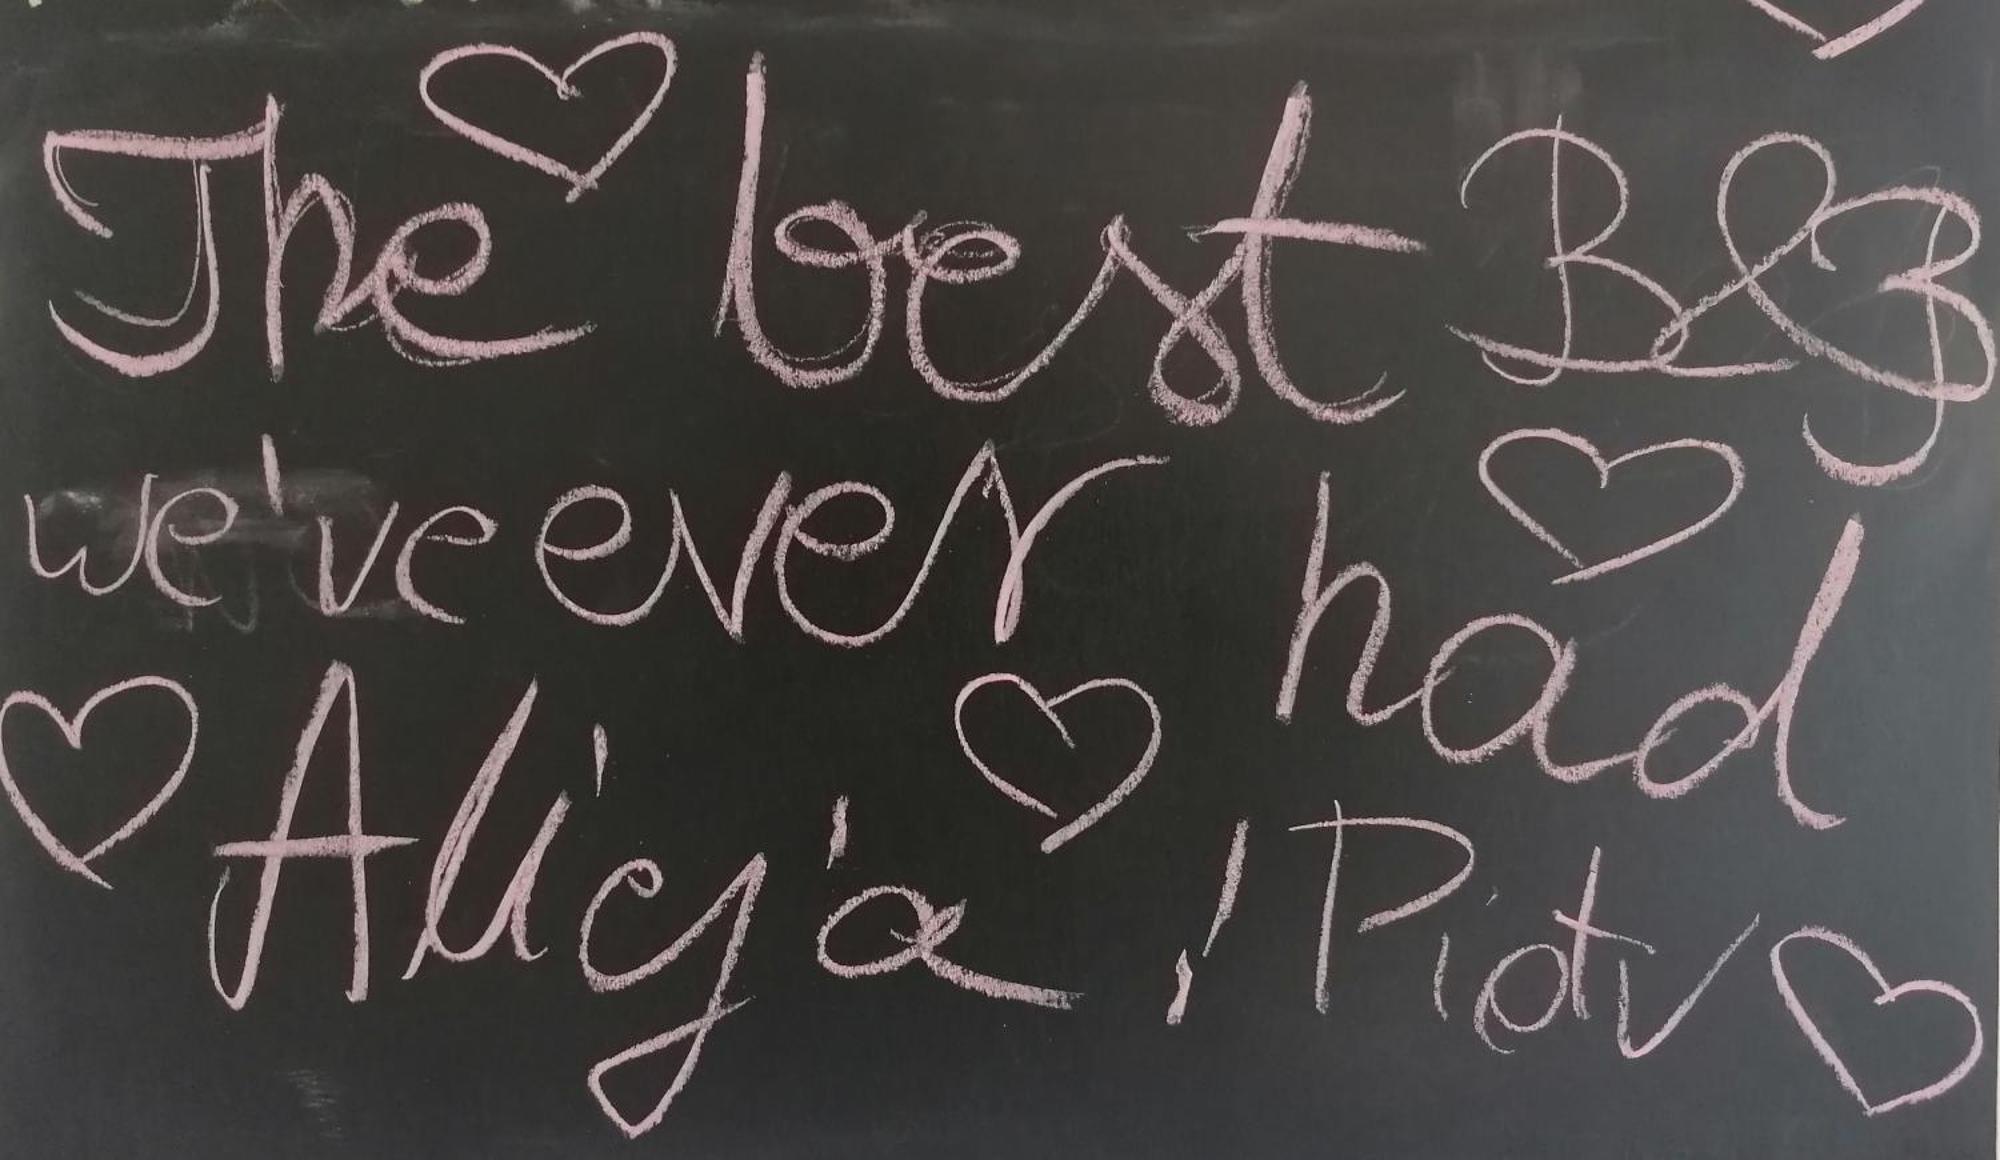 The best B&B
we've ever had
Alicja i Piotr